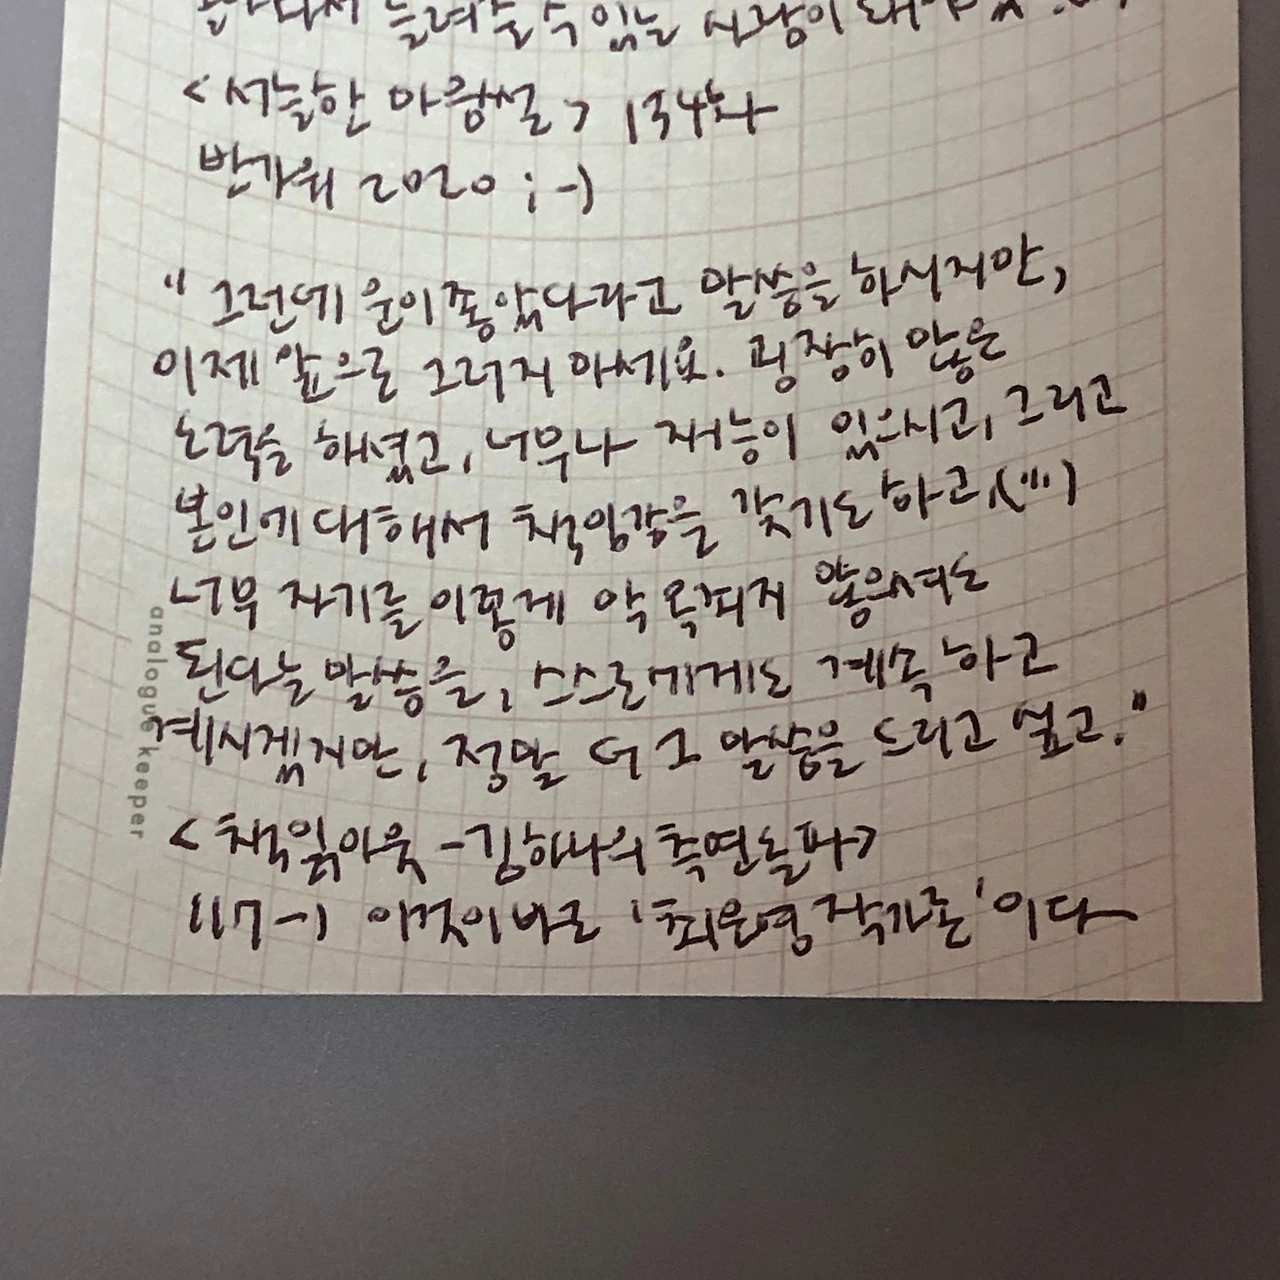 들려줄 수 있는 사람이
<서늘한 마음썰> 134화
반가워 2020 ; -)
"그런데 운이 좋았다라고 말씀을 하시지만,
이제 앞으로 그러지 마세요. 굉장히 많은
노력을 해셨고, 너무나 재능이 있으시고, 그리고
본인에 대해서 책임감을 갖기도 하고, (...)
너무 자기를 이렇게 악 옥죄지 않으셔도
된다는 말씀을, 스스로에게도 계속 하고
계시겠지만, 정말 더 그 말씀을 드리고 싶고."
<책읽아웃 - 김하나의 측면돌파>
117-1 이것이 바로 '최은영 작가론' 이다
analogue keeper